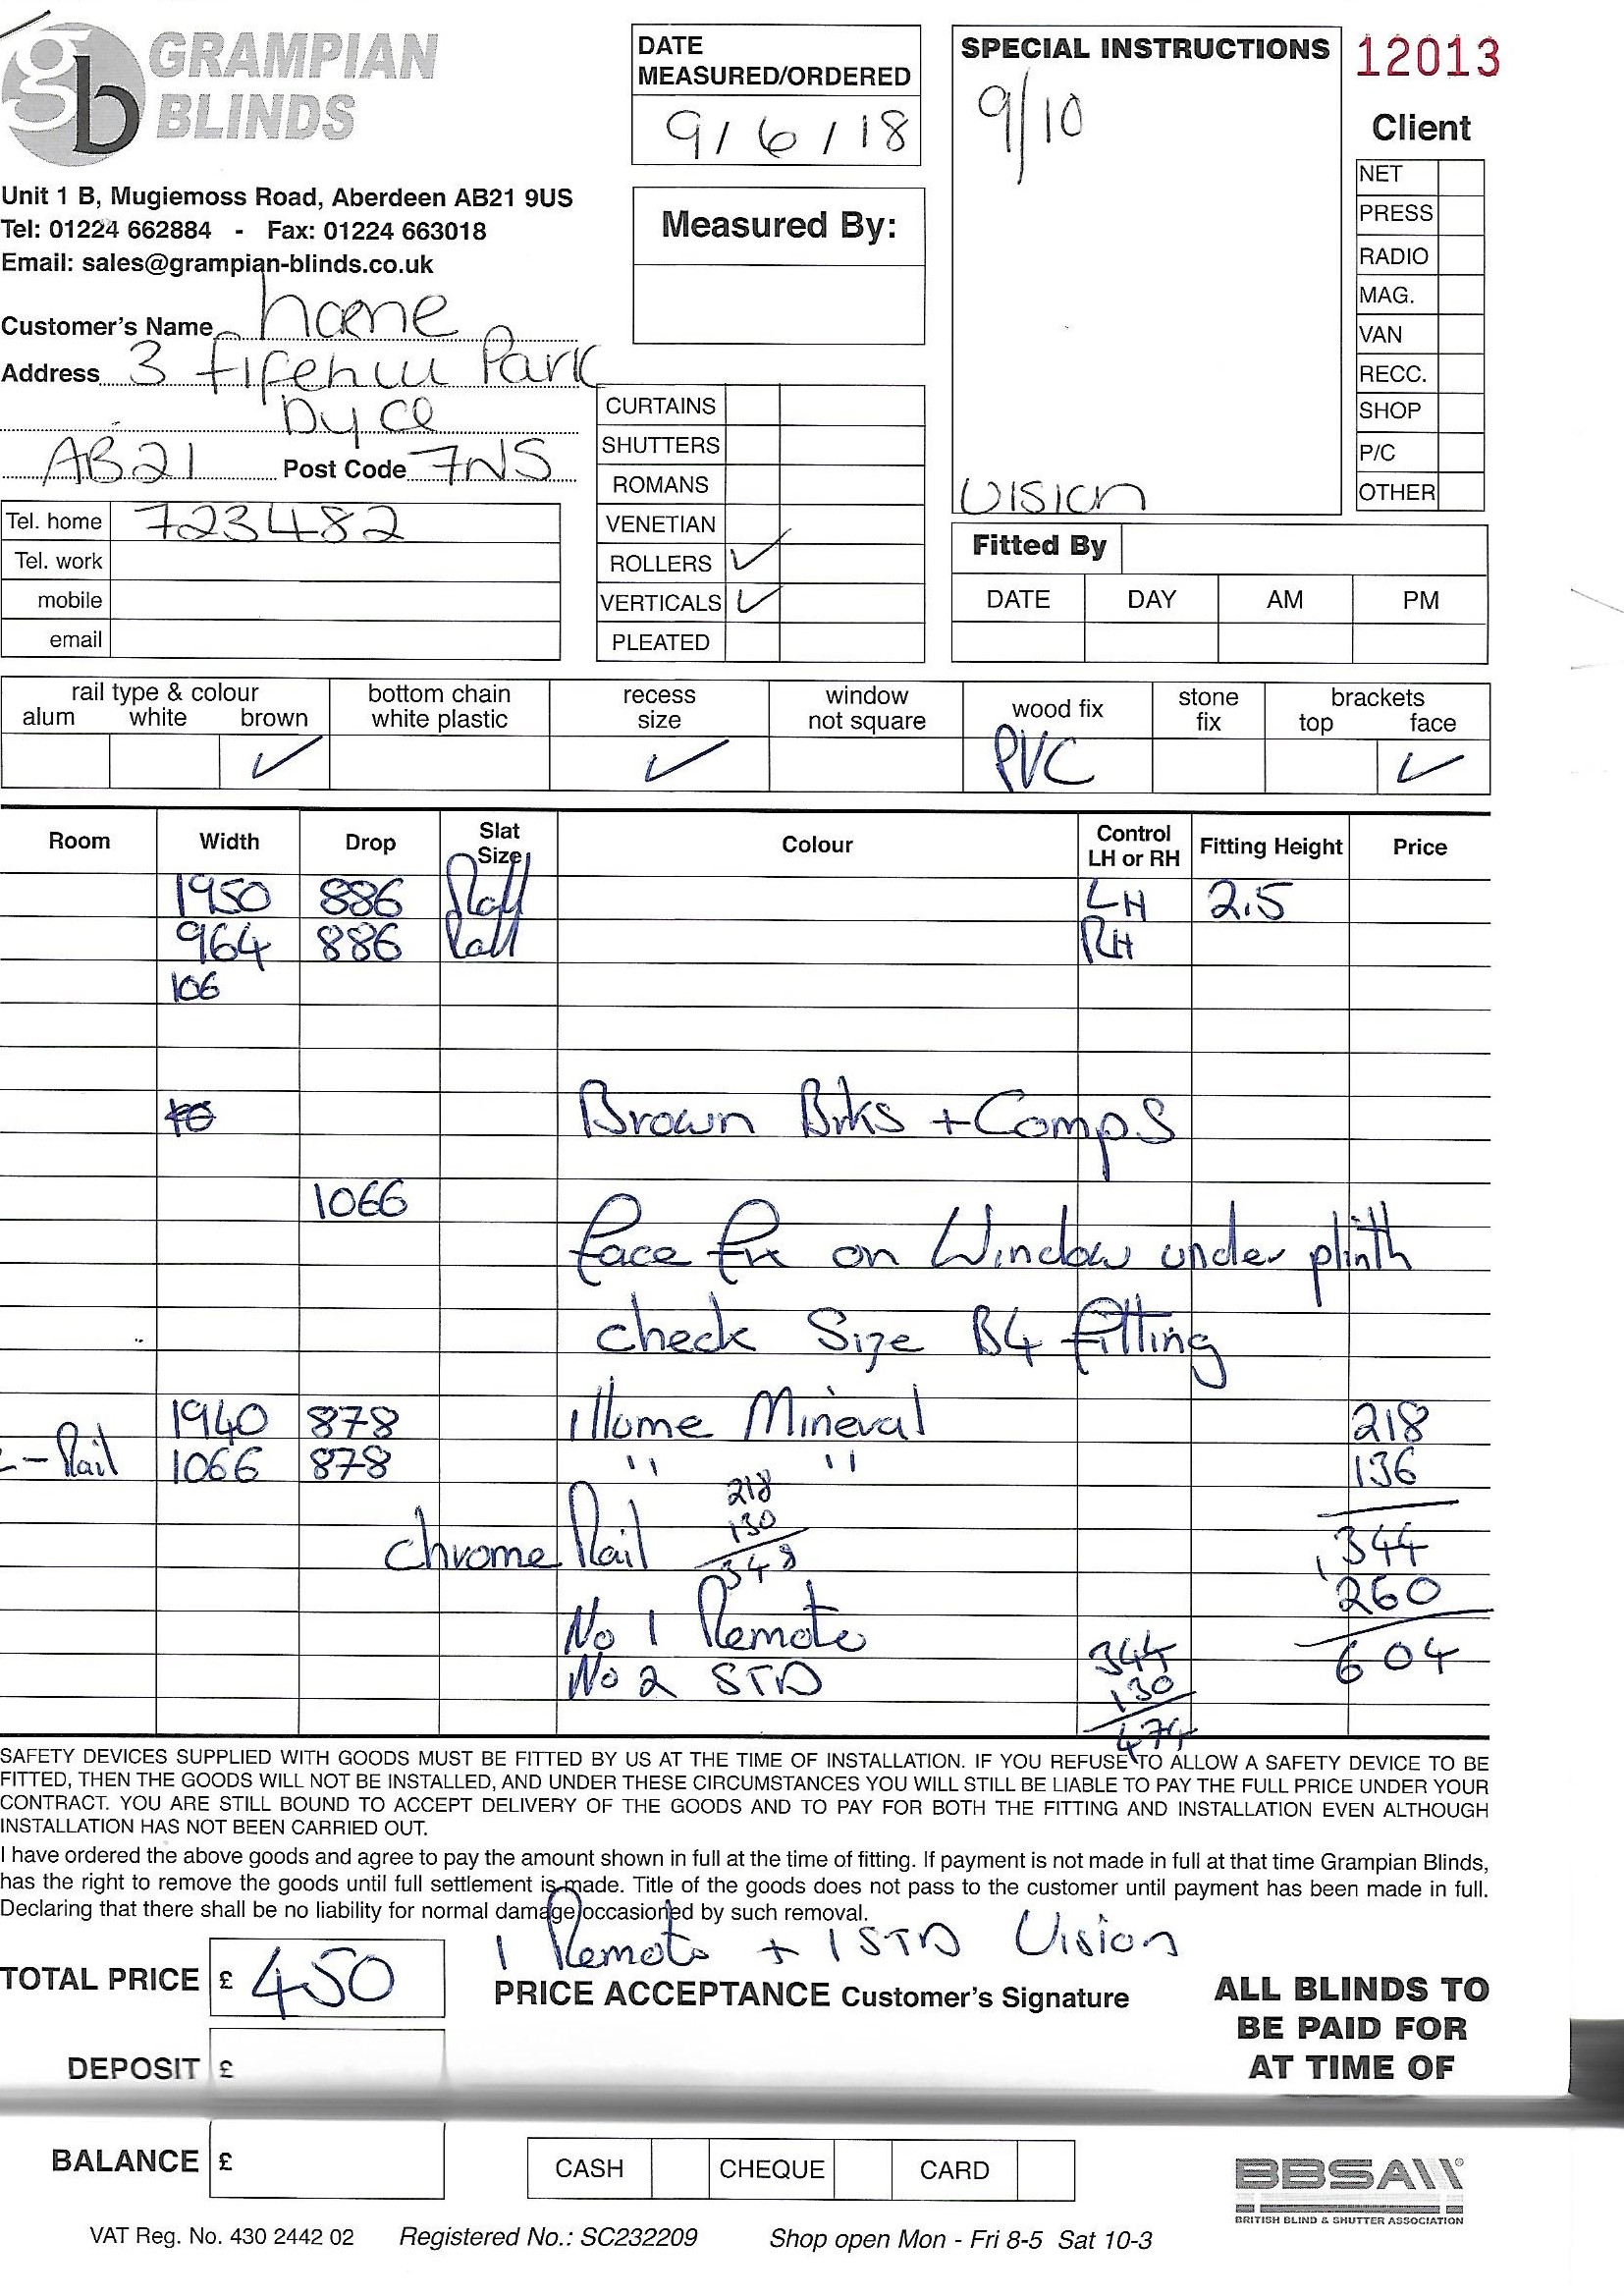 GRAMPIAN
BLINDS
gb
Unit 1 B, Mugiemoss Road, Aberdeen AB21 9US
Tel: 01224 662884 - Fax: 01224 663018
Email: sales@grampian-blinds.co.uk
Customer's Name
Address 3 Fifehill Park
Dyce
AB21 Post Code 7NS
Tel. home 723482
Tel. work
mobile
email
DATE
MEASURED/ORDERED
9/6/18
Measured By:
CURTAINS
SHUTTERS
ROMANS
VENETIAN
ROLLERS ✓
VERTICALS ✓
PLEATED
SPECIAL INSTRUCTIONS
9/10
Vision
12013
Client
NET
PRESS
RADIO
MAG.
VAN
RECC.
SHOP
P/C
OTHER
Fitted By
DATE DAY AM PM
rail type & colour bottom chain recess window wood fix stone brackets
alum white brown white plastic size not square fix top face
✓ ✓ PVC ✓
Room Width Drop Slat Size Colour Control LH or RH Fitting Height Price
1950 886 Roll LH 2.5
964 886 Roll RH
106
Brown Brks + Comps
1066
face fix on Window under plinth
check Size B4 fitting
1940 878 illume Mineral 218
Rail 1066 878 " " 136
218
130
348
Chrome Rail
344
260
604
No 1 Remote
No 2 STD
344
130
474
SAFETY DEVICES SUPPLIED WITH GOODS MUST BE FITTED BY US AT THE TIME OF INSTALLATION. IF YOU REFUSE TO ALLOW A SAFETY DEVICE TO BE
FITTED, THEN THE GOODS WILL NOT BE INSTALLED, AND UNDER THESE CIRCUMSTANCES YOU WILL STILL BE LIABLE TO PAY THE FULL PRICE UNDER YOUR
CONTRACT. YOU ARE STILL BOUND TO ACCEPT DELIVERY OF THE GOODS AND TO PAY FOR BOTH THE FITTING AND INSTALLATION EVEN ALTHOUGH
INSTALLATION HAS NOT BEEN CARRIED OUT.
I have ordered the above goods and agree to pay the amount shown in full at the time of fitting. If payment is not made in full at that time Grampian Blinds,
has the right to remove the goods until full settlement is made. Title of the goods does not pass to the customer until payment has been made in full.
Declaring that there shall be no liability for normal damage occasioned by such removal.
1 Remote + 1 STD Vision
TOTAL PRICE £ 450
PRICE ACCEPTANCE Customer's Signature
ALL BLINDS TO
BE PAID FOR
AT TIME OF
DEPOSIT £
BALANCE £
CASH CHEQUE CARD
BBSA
BRITISH BLIND & SHUTTER ASSOCIATION
VAT Reg. No. 430 2442 02 Registered No.: SC232209 Shop open Mon - Fri 8-5 Sat 10-3